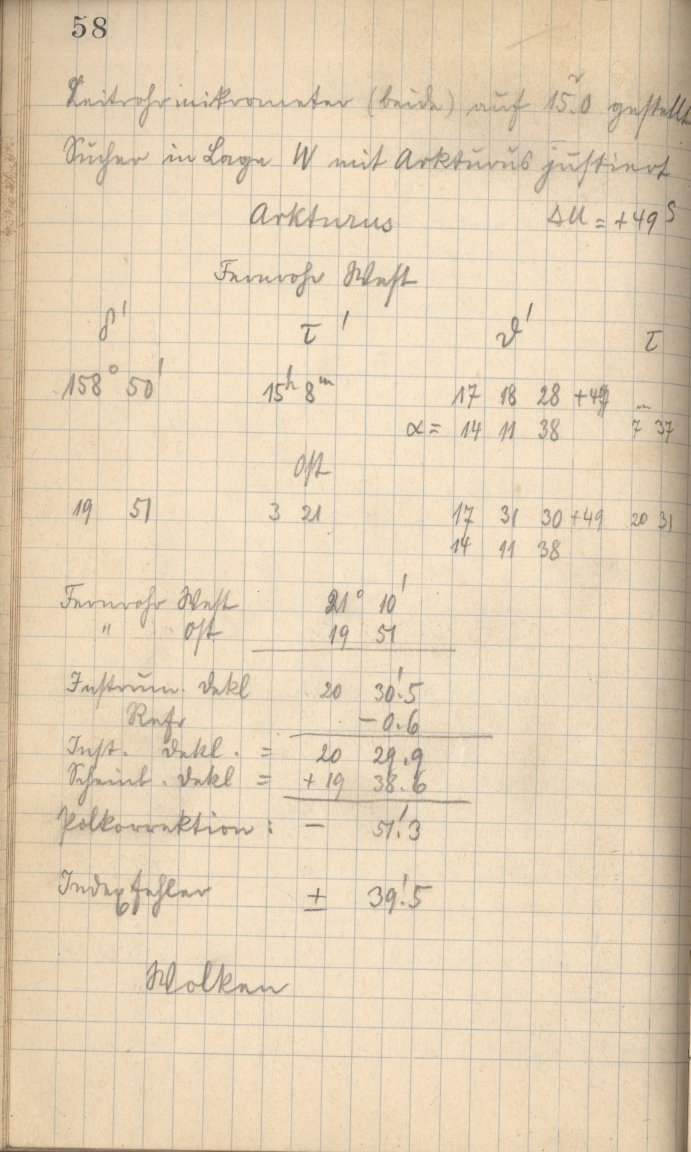 58
Leitrohrmikrometer (beide) auf 15.0 gestellt
Sucher in Lage W mit Arkturus justiert
Arkturus ΔU = +49 s
Fernrohr West
δ' τ' ϑ' τ
158° 50' 15h 8m 17 18 28 +49
α = 14 11 38 7m 37
Ost
19 51 3 21 17 31 30 +49 20 31
14 11 38
Fernrohr West 21° 10'
" Ost 19 51
Instrum. Dekl 20 30'.5
Refr − 0.6
Inst. Dekl. = 20 29.9
Scheinb. Dekl = + 19 38.6
Polkorrektion: − 51'.3
Indexfehler ± 39'.5
Wolken